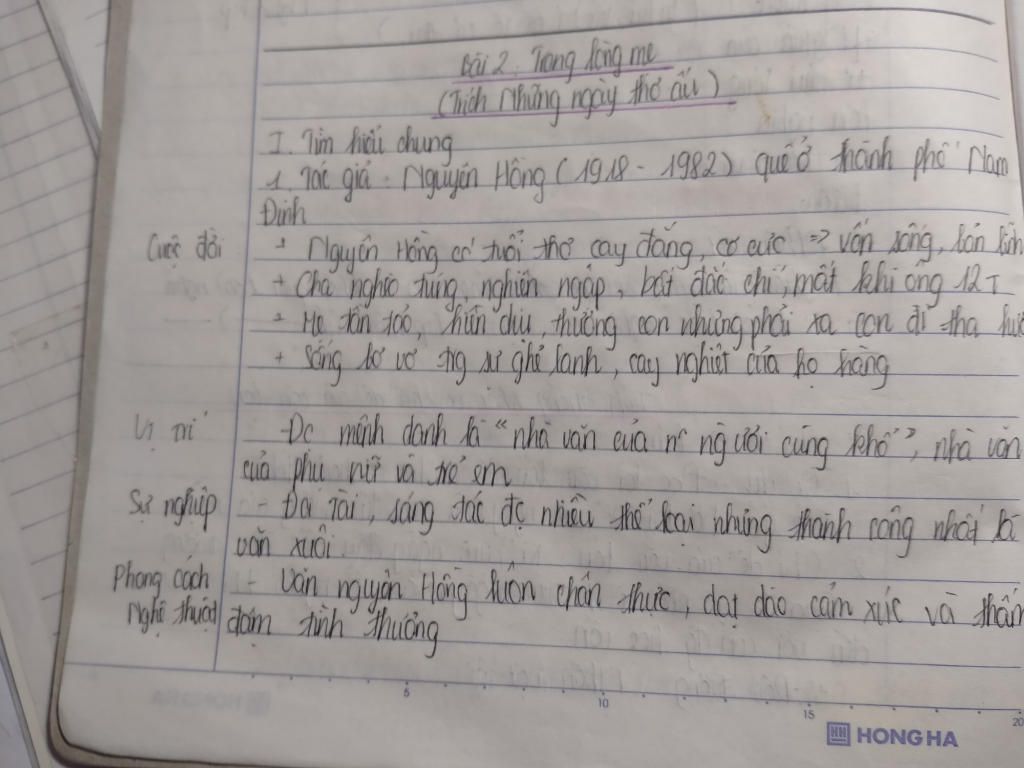 Bài 2. Trong lòng mẹ
(Trích Những ngày thơ ấu)
I. Tìm hiểu chung
1. Tác giả - Nguyên Hồng (1918 - 1982) quê ở thành phố Nam
Định
Cuộc đời + Nguyên Hồng có tuổi thơ cay đắng, cơ cực => vốn sống, bản lĩnh
+ Cha nghèo túng, nghiện ngập, bất đắc chí, mất khi ông 12T
+ Mẹ tần tảo, hiền dịu, thương con nhưng phải xa con đi tha
+ Sống bơ vơ trg sự ghẻ lạnh, cay nghiệt của họ hàng
Vị trí - Đc mệnh danh là "nhà văn của n~ người cùng khổ", nhà văn
của phụ nữ và trẻ em
Sự nghiệp - Đa tài, sáng tác đc nhiều thể loại nhưng thành công nhất là
văn xuôi
Phong cách - Văn nguyên Hồng luôn chân thực, dạt dào cảm xúc và thấm
Nghệ thuật đẫm tình thương
5 10 15 20
HONG HA